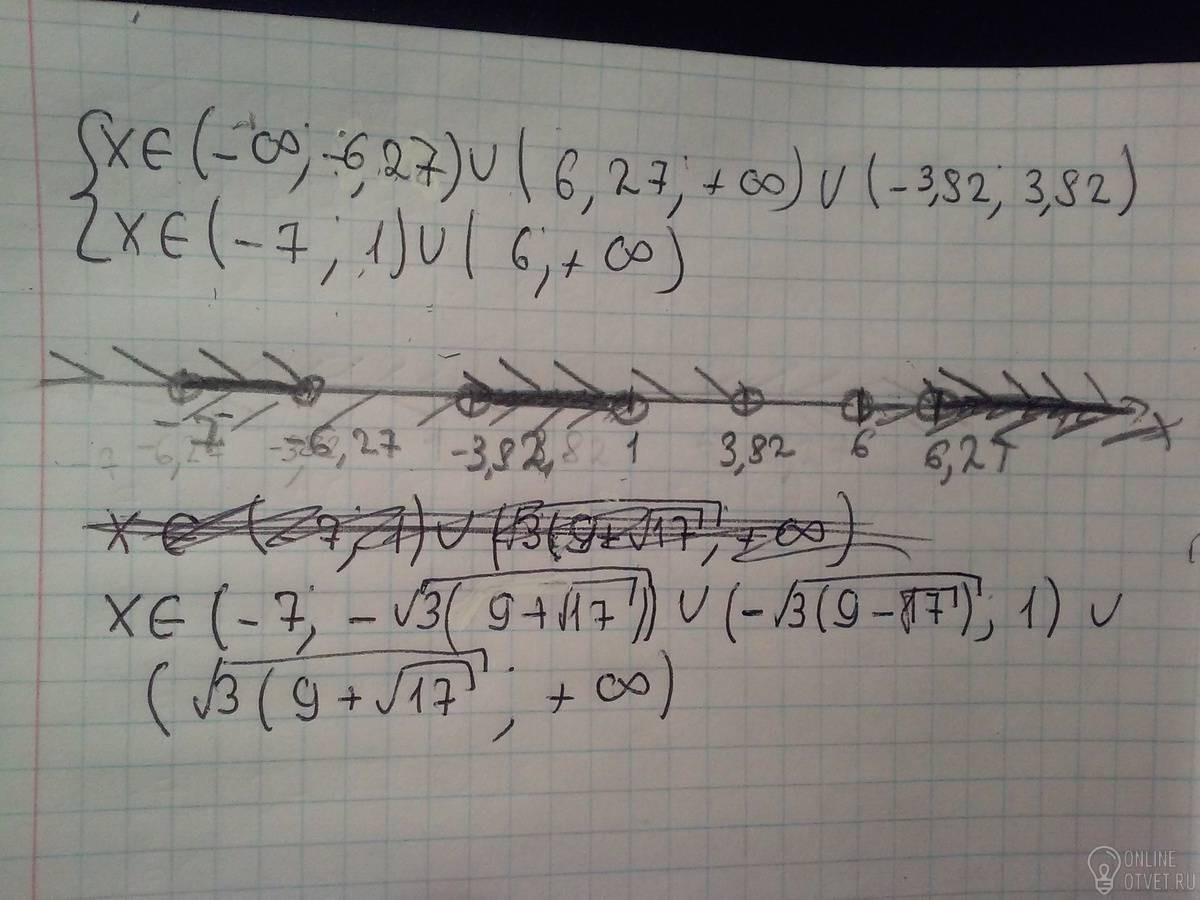 { x ∈ (-∞; -6,27) ∪ ( 6,27; +∞) ∪ (-3,82; 3,82)
{ x ∈ (-7; 1) ∪ ( 6; +∞)
-7 -6,27 -3,82 1 3,82 6 6,27 x
x ∈ (-7; 1) ∪ (√3(9+√17); +∞)
x ∈ (-7; -√3(9+√17)) ∪ (-√3(9-√17); 1) ∪
(√3(9+√17); +∞)
ONLINE
OTVET.RU